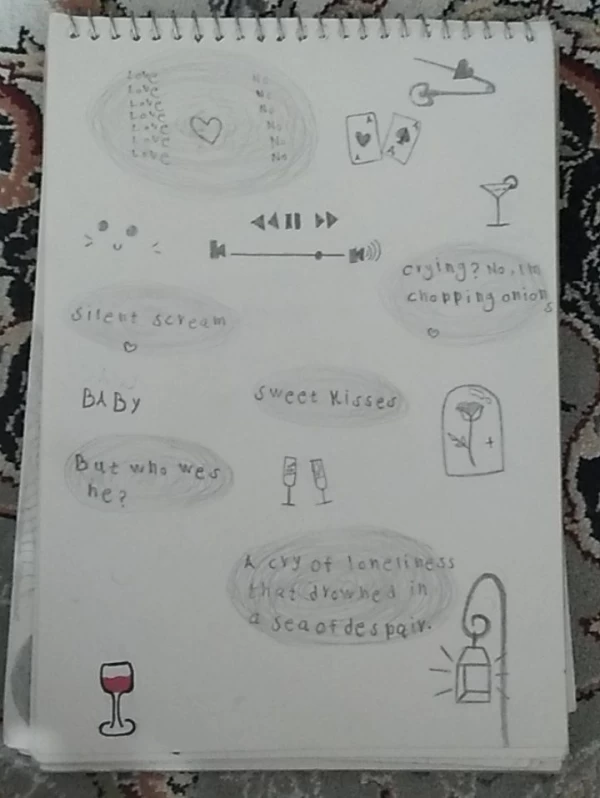 Love No
Love No
Love No
Love No
Love No
Love No
A
A
crying? No, I'm
chopping onions
silent scream
BABy
sweet kisses
But who wes
he?
A cry of loneliness
that drowned in
a sea of despair.